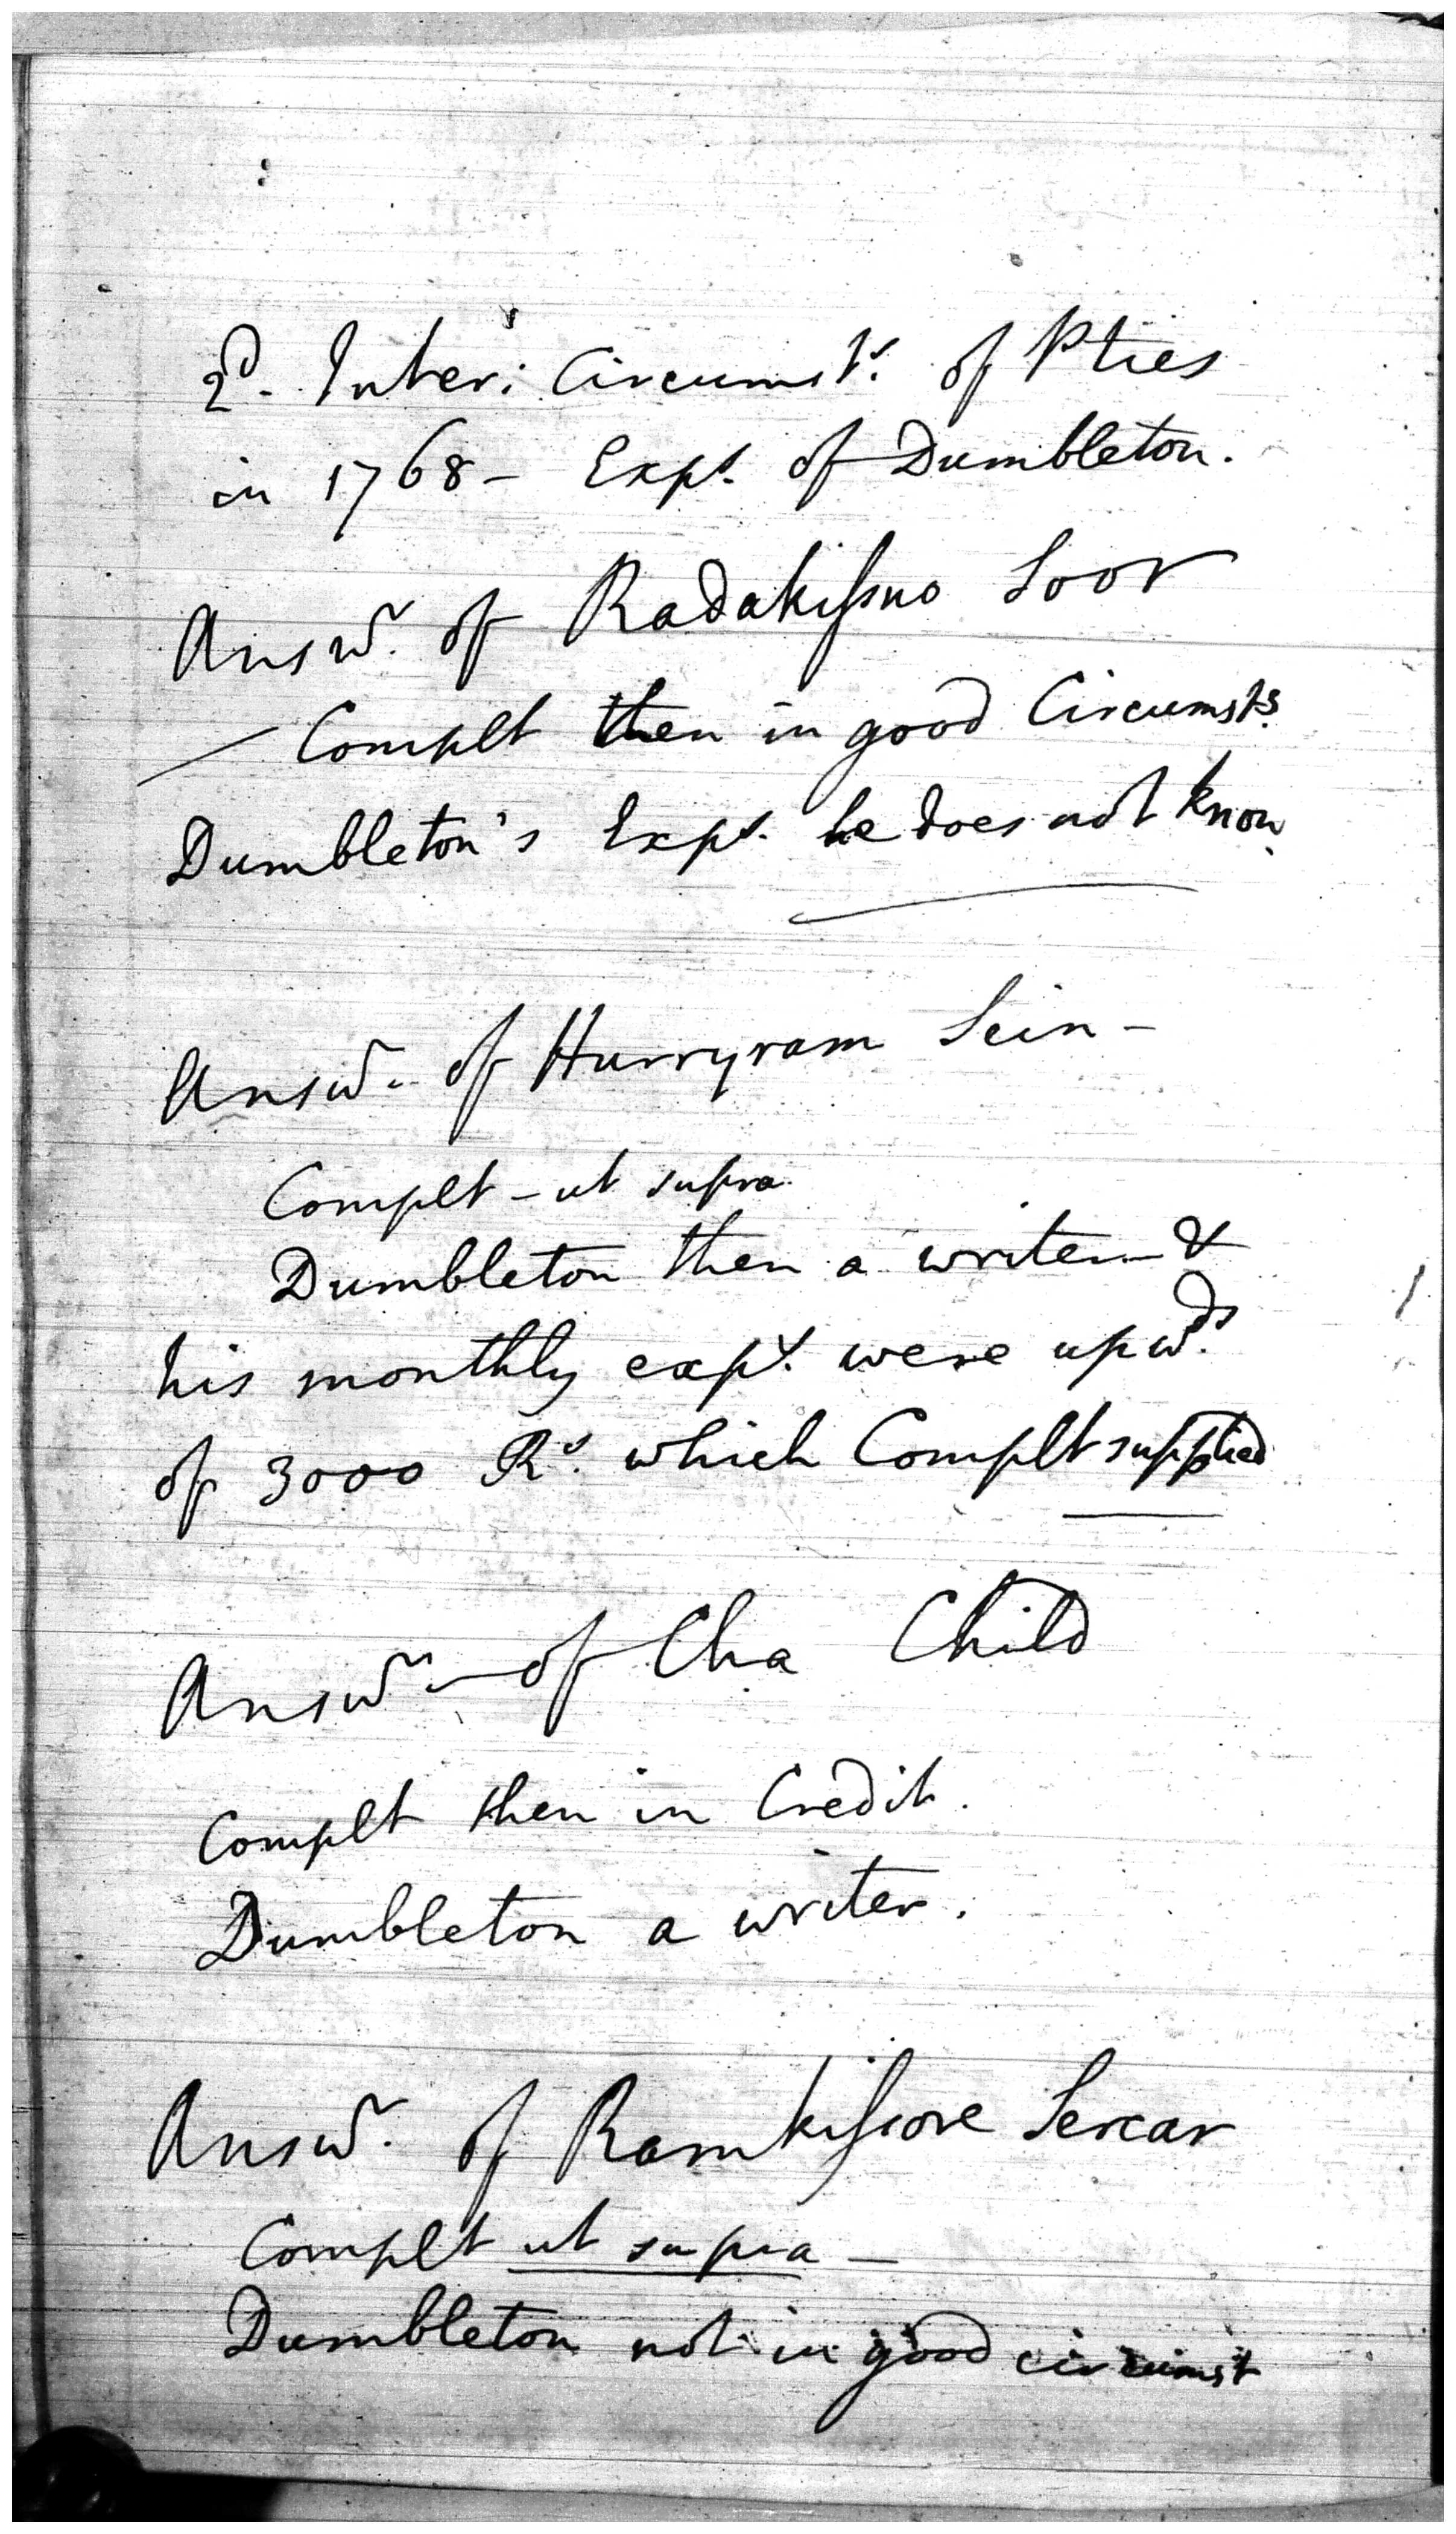 2d. Inter: Circumsts. of Pties
in 1768 - Exps. of Dumbleton.
Answr. of Radakissno Soor
Complt then in good Circumsts.
Dumbleton's Exps. he does not know.
Answr. of Hurryram Sein -
Complt - ut supra.
Dumbleton then a writer - &
his monthly exps. were upwds.
of 3000 Rs. which Complt supplied
Answr. - of Cha Child
Complt then in Credit.
Dumbleton a writer.
Answr. of Ramkissore Sercar
Complt ut supra -
Dumbleton not in good circumst